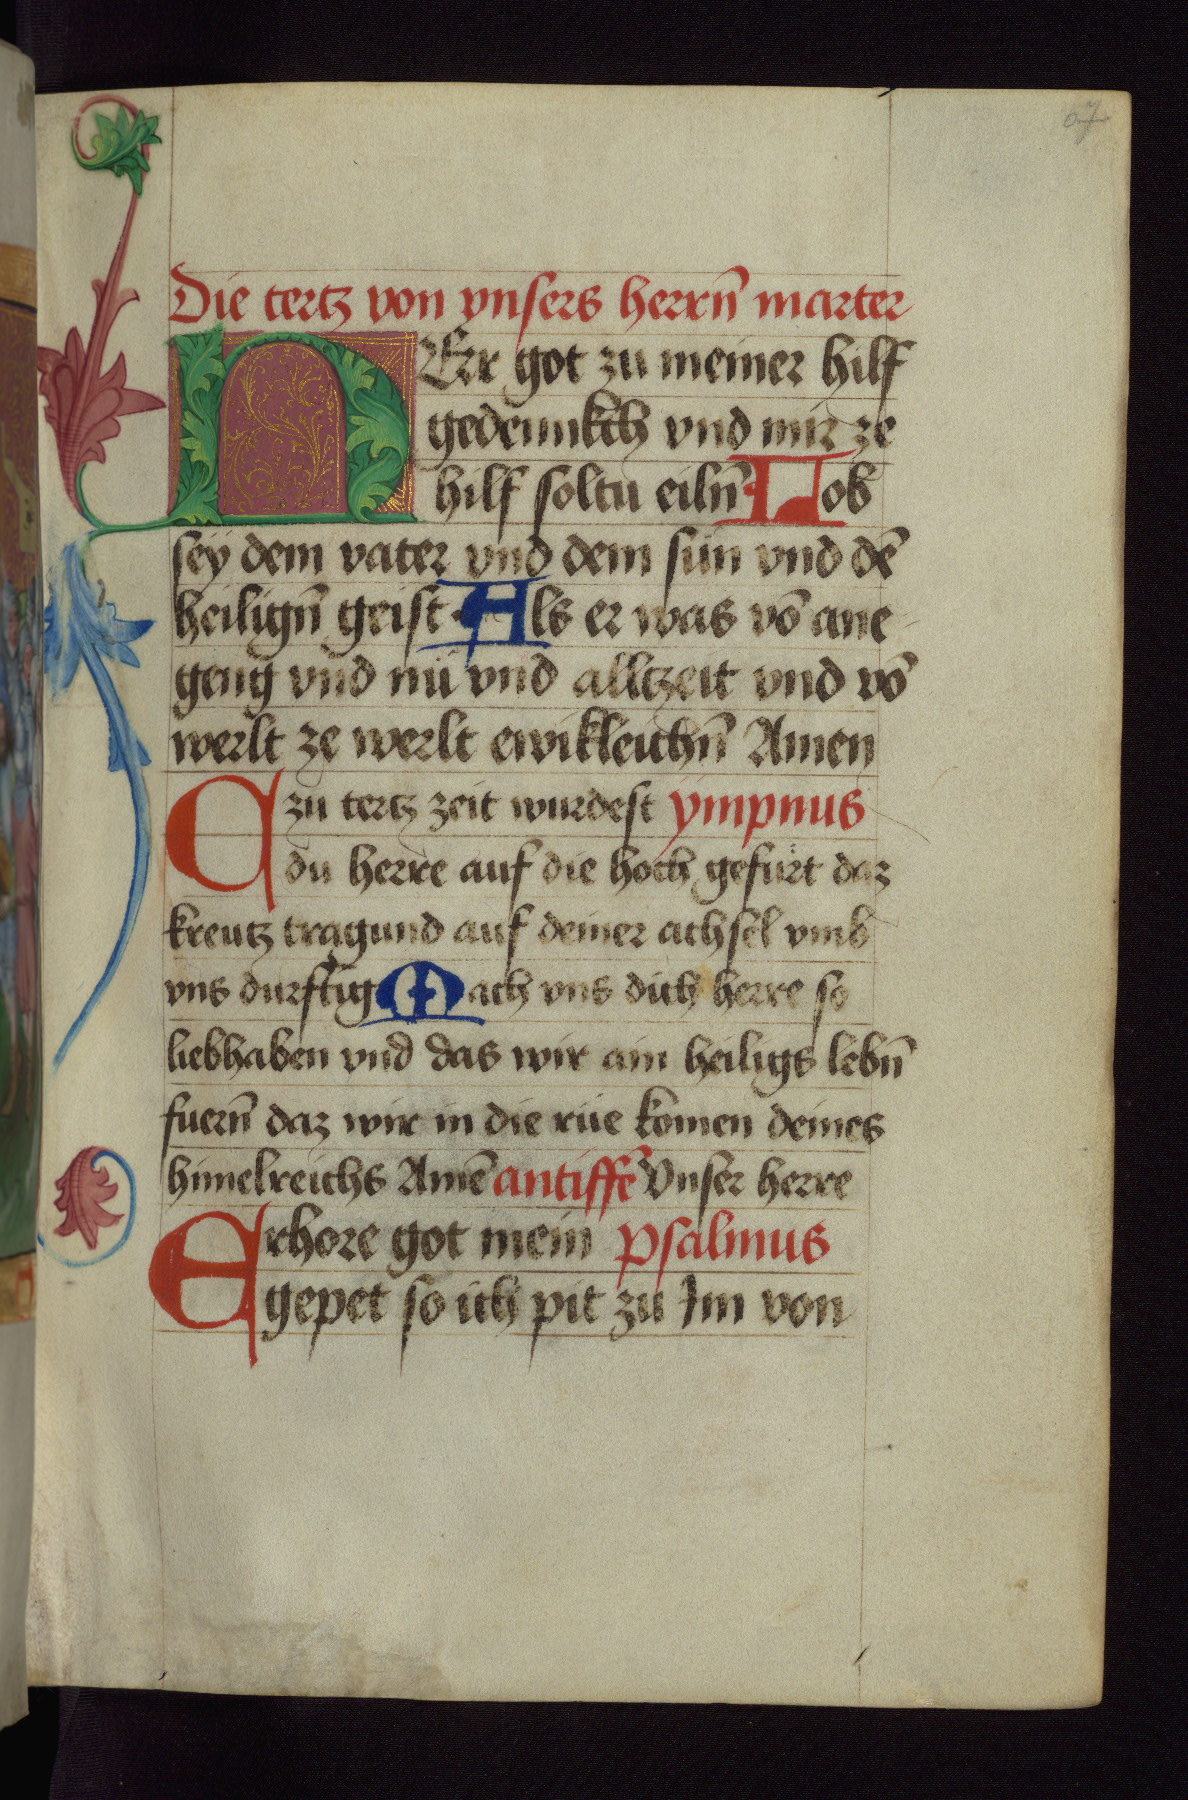 Die tertz von vnsers herrn̄ marter
HErr got zu meiner hilf
gedennkch vnd mir ze
hilf soltu eiln̄ Lob
sey dem vater vnd dem sun vnd dē
heilign̄ geist Als er was vō ane
geng vnd nu vnd alltzeit vnd vō
werlt ze werlt ewikleichn̄ Amen
Czu tertz zeit wurdest ympnus
du herre auf die hoch gefürt daz
kreutz tragund auf deiner achsel vmb
vns durftig Mach vns dich herre so
liebhaben vnd das wir ain heiligs lebn̄
fuern̄ daz wir in die rüe komen deines
himelreichs Amē antiffē Vnser herre
Erhore got mein psalmus
gepet so ich pit zu Im von